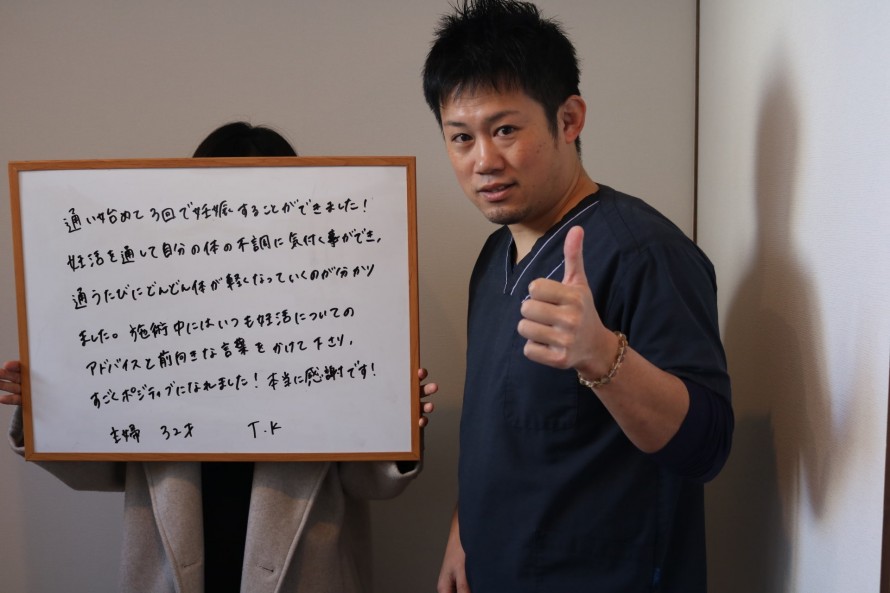 通い始めて3回で妊娠することができました!
妊活を通して自分の体の不調に気付く事ができ、
通うたびにどんどん体が軽くなっていくのが分かり
ました。施術中にはいつも妊活についての
アドバイスと前向きな言葉をかけて下さり、
すごくポジティブになれました!本当に感謝です!
主婦 32才 T.K